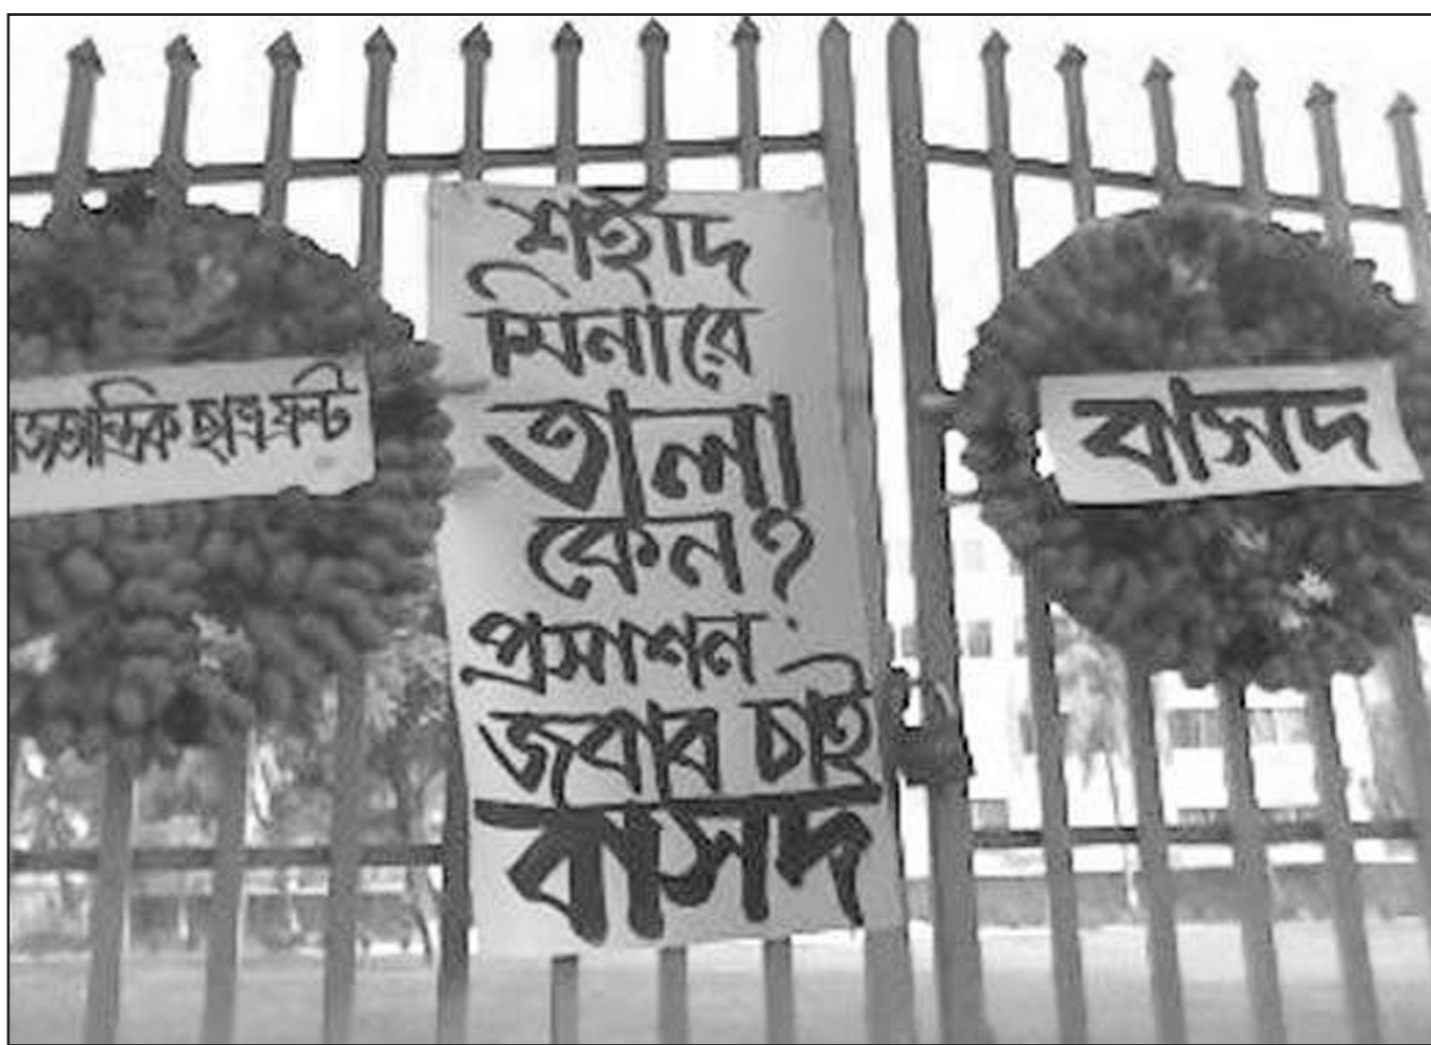 াজতান্ত্রিক ছাত্র ফ্রন্ট
শহীদ
মিনারে
তালা
কেন?
প্রসাশন
জবাব চাই
বাসদ
বাসদ